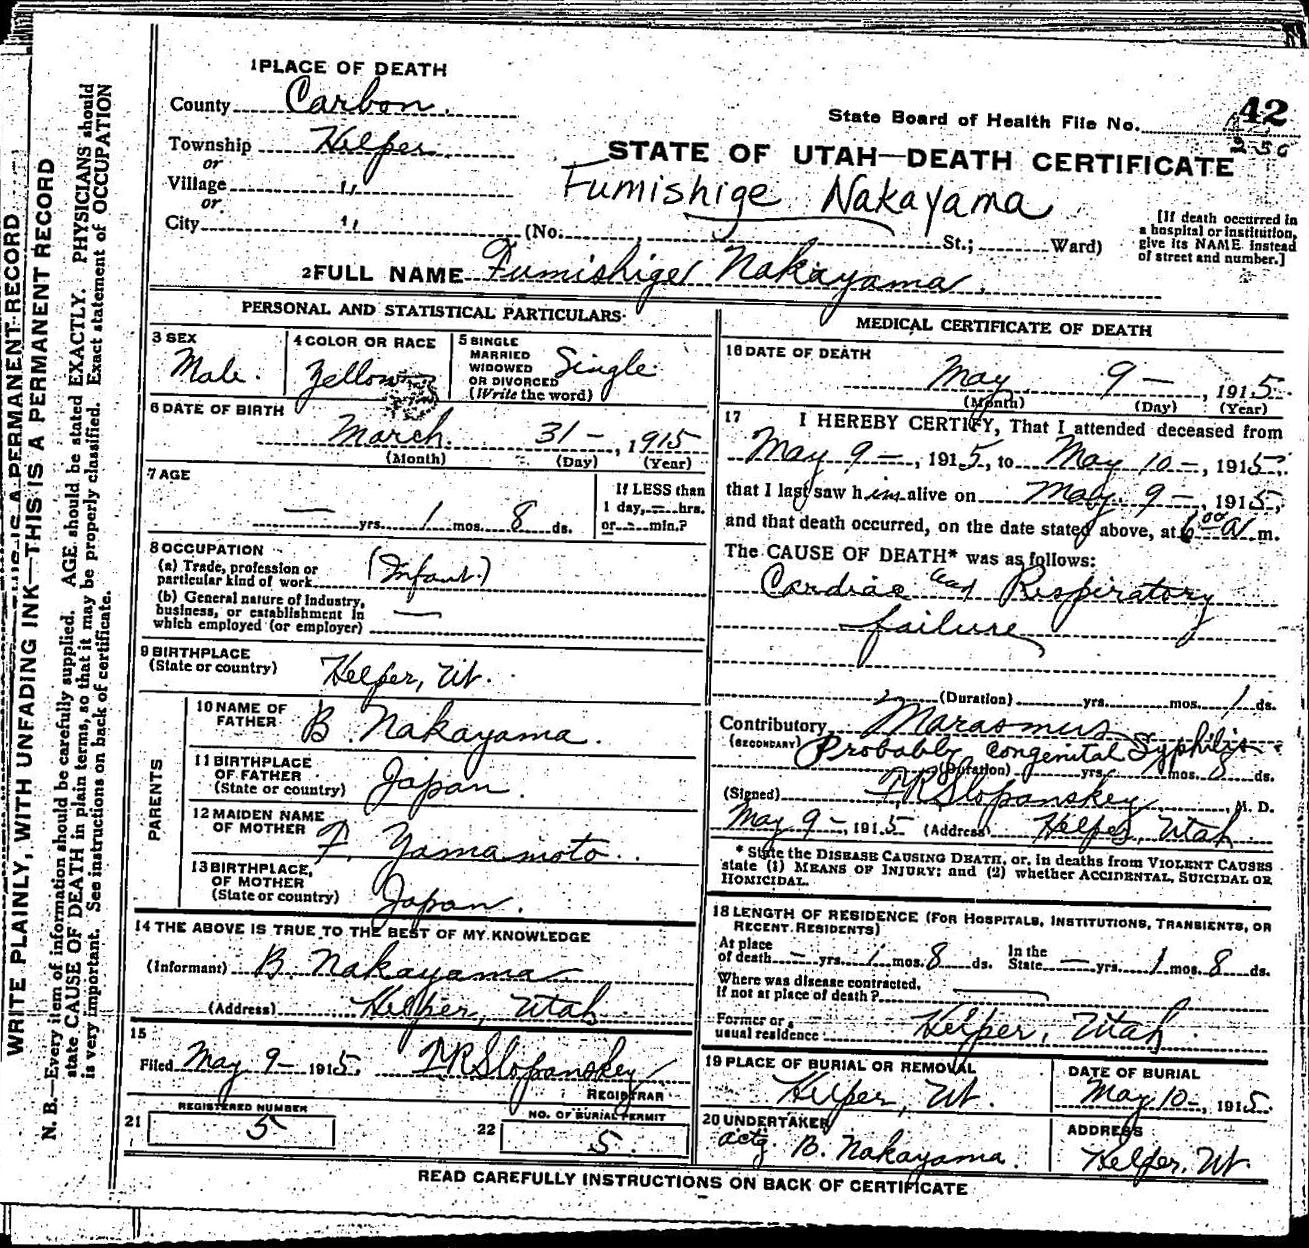 WRITE PLAINLY, WITH UNFADING INK—THIS IS A PERMANENT RECORD
N. B.—Every item of information should be carefully supplied. AGE should be stated EXACTLY. PHYSICIANS should
state CAUSE OF DEATH in plain terms, so that it may be properly classified. Exact statement of OCCUPATION
is very important. See instructions on back of certificate.
1 PLACE OF DEATH
County Carbon.
Township Helper
or
Village "
or
City "
(No. St.; Ward)
State Board of Health File No. 42
256
STATE OF UTAH—DEATH CERTIFICATE
Fumishige Nakayama
[If death occurred in
a hospital or institution,
give its NAME instead
of street and number.]
2 FULL NAME Fumishige Nakayama.
PERSONAL AND STATISTICAL PARTICULARS
3 SEX
Male.
4 COLOR OR RACE
Yellow
5 SINGLE
MARRIED
WIDOWED
OR DIVORCED
(Write the word)
Single
6 DATE OF BIRTH
March. 31 –, 1915
(Month) (Day) (Year)
7 AGE
— yrs. 1 mos. 8 ds.
If LESS than
1 day, – hrs.
or – min.?
8 OCCUPATION
(a) Trade, profession or
particular kind of work
(Infant.)
(b) General nature of industry,
business, or establishment in
which employed (or employer)
—
9 BIRTHPLACE
(State or country)
Helper, Ut.
PARENTS
10 NAME OF
FATHER
B. Nakayama.
11 BIRTHPLACE
OF FATHER
(State or country)
Japan.
12 MAIDEN NAME
OF MOTHER
F. Yamamoto.
13 BIRTHPLACE,
OF MOTHER
(State or country)
Japan.
14 THE ABOVE IS TRUE TO THE BEST OF MY KNOWLEDGE
(Informant) B. Nakayama
(Address) Helper, Utah
15
Filed May 9 – 1915. F R Slopanskey
REGISTRAR
REGISTERED NUMBER
21 5
NO. OF BURIAL PERMIT
22 5.
MEDICAL CERTIFICATE OF DEATH
16 DATE OF DEATH
May 9 –, 1915.
(Month) (Day) (Year)
17 I HEREBY CERTIFY, That I attended deceased from
May 9 –, 1915, to May 10 –, 1915.
that I last saw him alive on May. 9 –, 1915,
and that death occurred, on the date stated above, at 6 00 a m.
The CAUSE OF DEATH* was as follows:
Cardiac and Respiratory
failure
(Duration) yrs. mos. 1 ds.
Contributory Marasmus
(SECONDARY) Probably congenital Syphilis.
(Duration) yrs. 1 mos. 8 ds.
(Signed) F R Slopanskey, M. D.
May 9 –, 1915 (Address) Helper, Utah.
* State the DISEASE CAUSING DEATH, or, in deaths from VIOLENT CAUSES
state (1) MEANS OF INJURY; and (2) whether ACCIDENTAL, SUICIDAL OR
HOMICIDAL.
18 LENGTH OF RESIDENCE (FOR HOSPITALS, INSTITUTIONS, TRANSIENTS, OR
RECENT RESIDENTS)
At place
of death – yrs. 1 mos. 8 ds.
In the
State – yrs. 1 mos. 8 ds.
Where was disease contracted,
if not at place of death?
Former or
usual residence Helper, Utah
19 PLACE OF BURIAL OR REMOVAL
Helper, Ut.
DATE OF BURIAL
May 10 –, 1915.
20 UNDERTAKER
actg. B. Nakayama.
ADDRESS
Helper. Ut.
READ CAREFULLY INSTRUCTIONS ON BACK OF CERTIFICATE